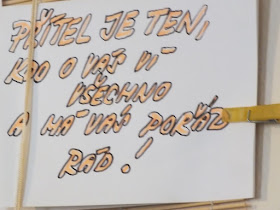 PŘÍTEL JE TEN,
KDO O VÁS VÍ
VŠECHNO
A MÁ VÁS POŘÁD
RÁD.!